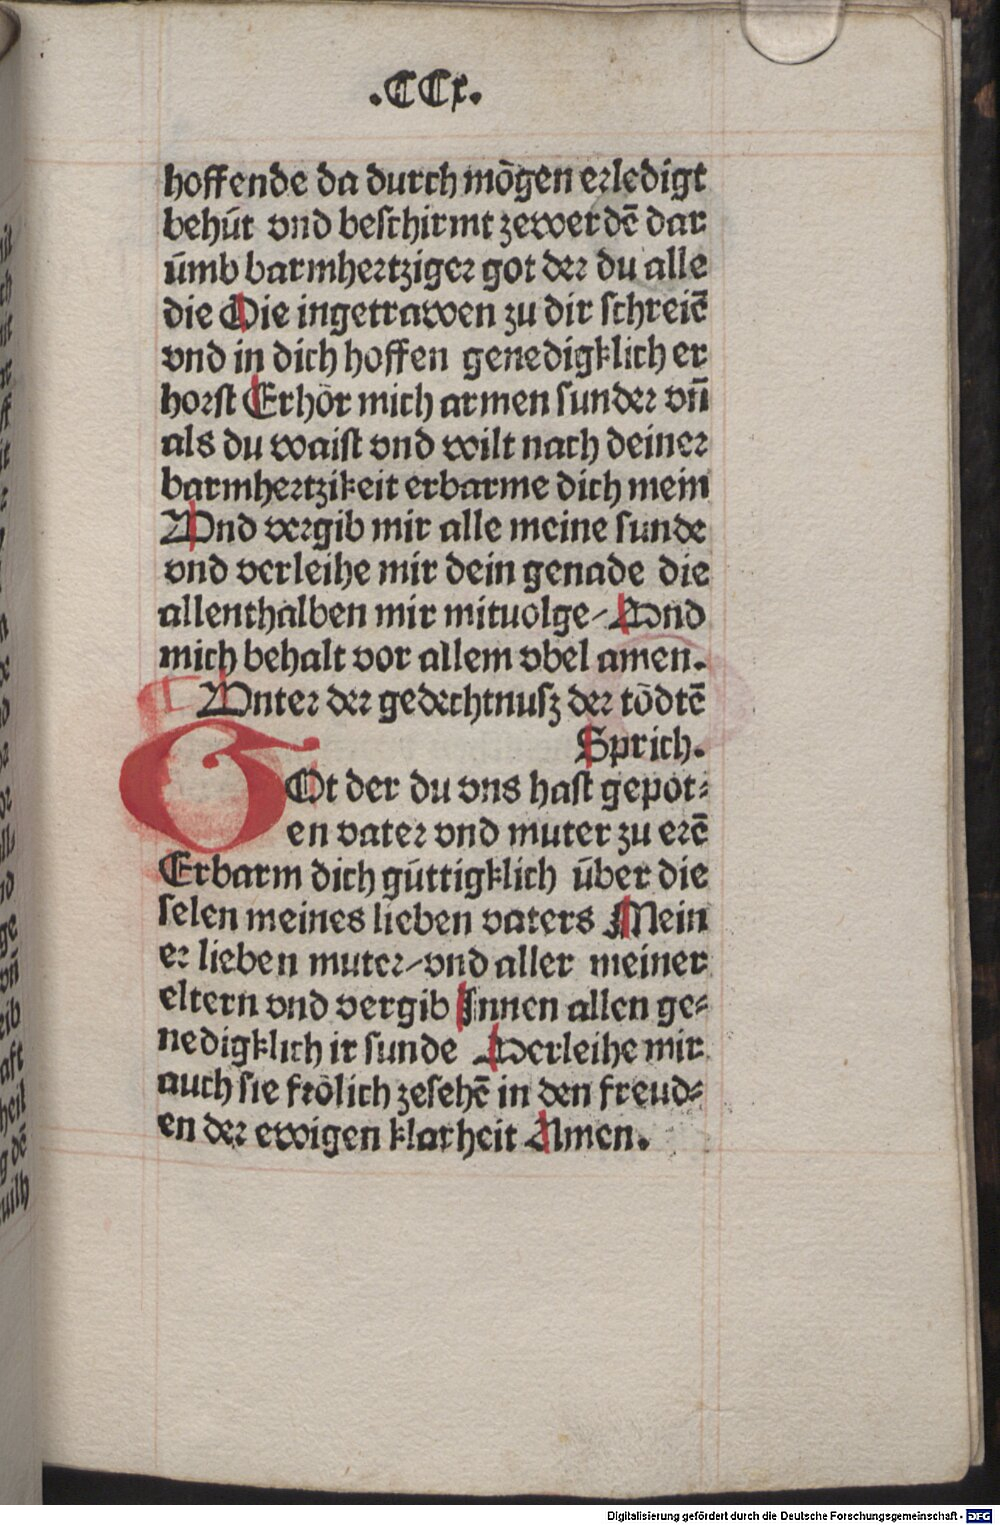 .CCx.
hoffende da durch mögen erledigt
behüt vnd beschirmt zewerdē dar
ümb barmhertziger got der du alle
die Die ingetrawen zu dir schreiē
vnd in dich hoffen genedigklich er
horst Erhör mich armen sunder vñ
als du waist vnd wilt nach deiner
barmhertzikeit erbarme dich mein
Vnd vergib mir alle meine sunde
vnd verleihe mir dein genade die
allenthalben mir mituolge/ Vnd
mich behalt vor allem vbel amen.
Vnter der gedechtnusz der tödtē
Sprich.
GOt der du vns hast gepot⸗
en vater vnd muter zu erē
Erbarm dich güttigklich über die
selen meines lieben vaters Mein
er lieben muter/vnd aller meiner
eltern vnd vergib Innen allen ge⸗
nedigklich ir sunde Verleihe mir
auch sie frölich zesehē in den freud⸗
en der ewigen klarheit Amen.
Digitalisierung gefördert durch die Deutsche Forschungsgemeinschaft - DFG